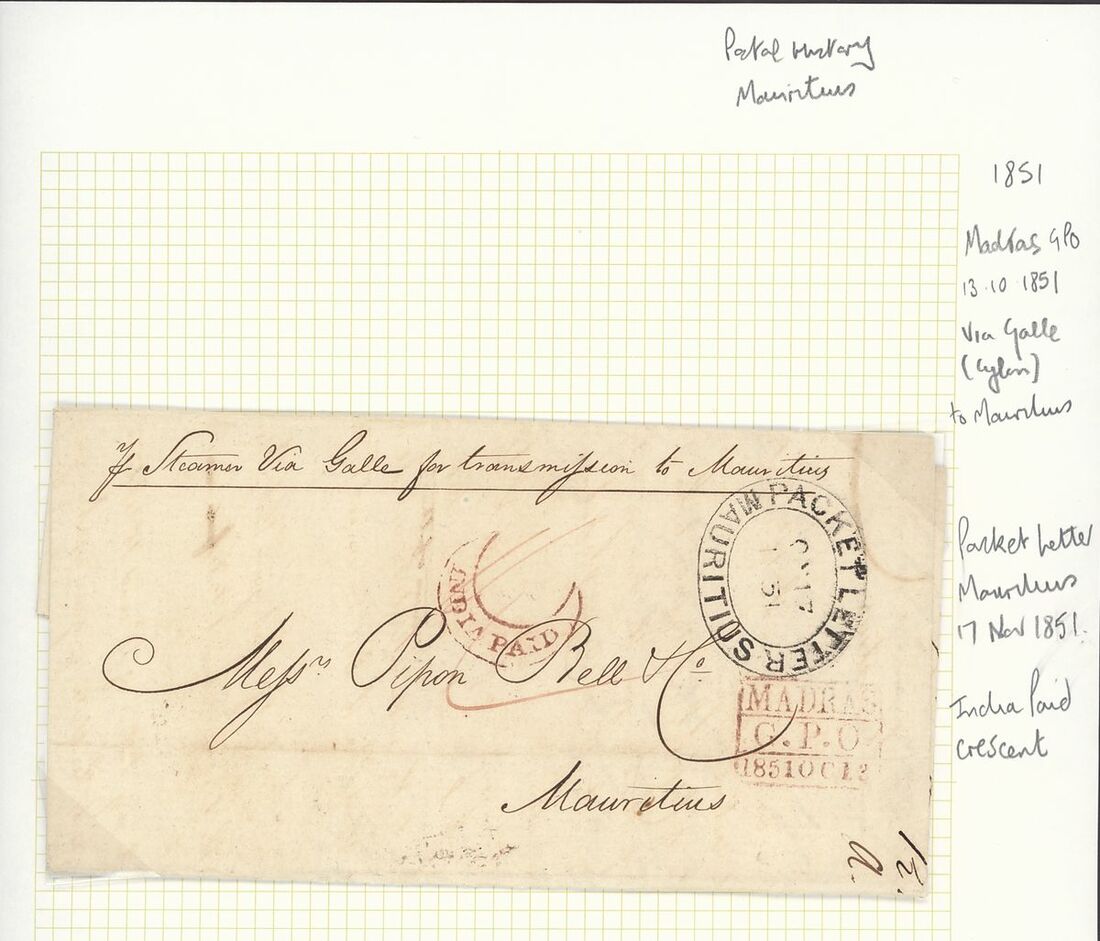 Postal History
Mauritius
1851
Madras GPO
13.10 1851
Via Galle
(Ceylon)
to Mauritius
Packet Letter
Mauritius
17 Nov 1851.
India Paid
crescent
Steamer Via Galle for transmission to Mauritius
PACKET LETTER
MAURITIUS
17
51
INDIA PAID
Messrs Pipon Bell & Co
MADRAS
G.P.O
1851 OC 13
Mauritius